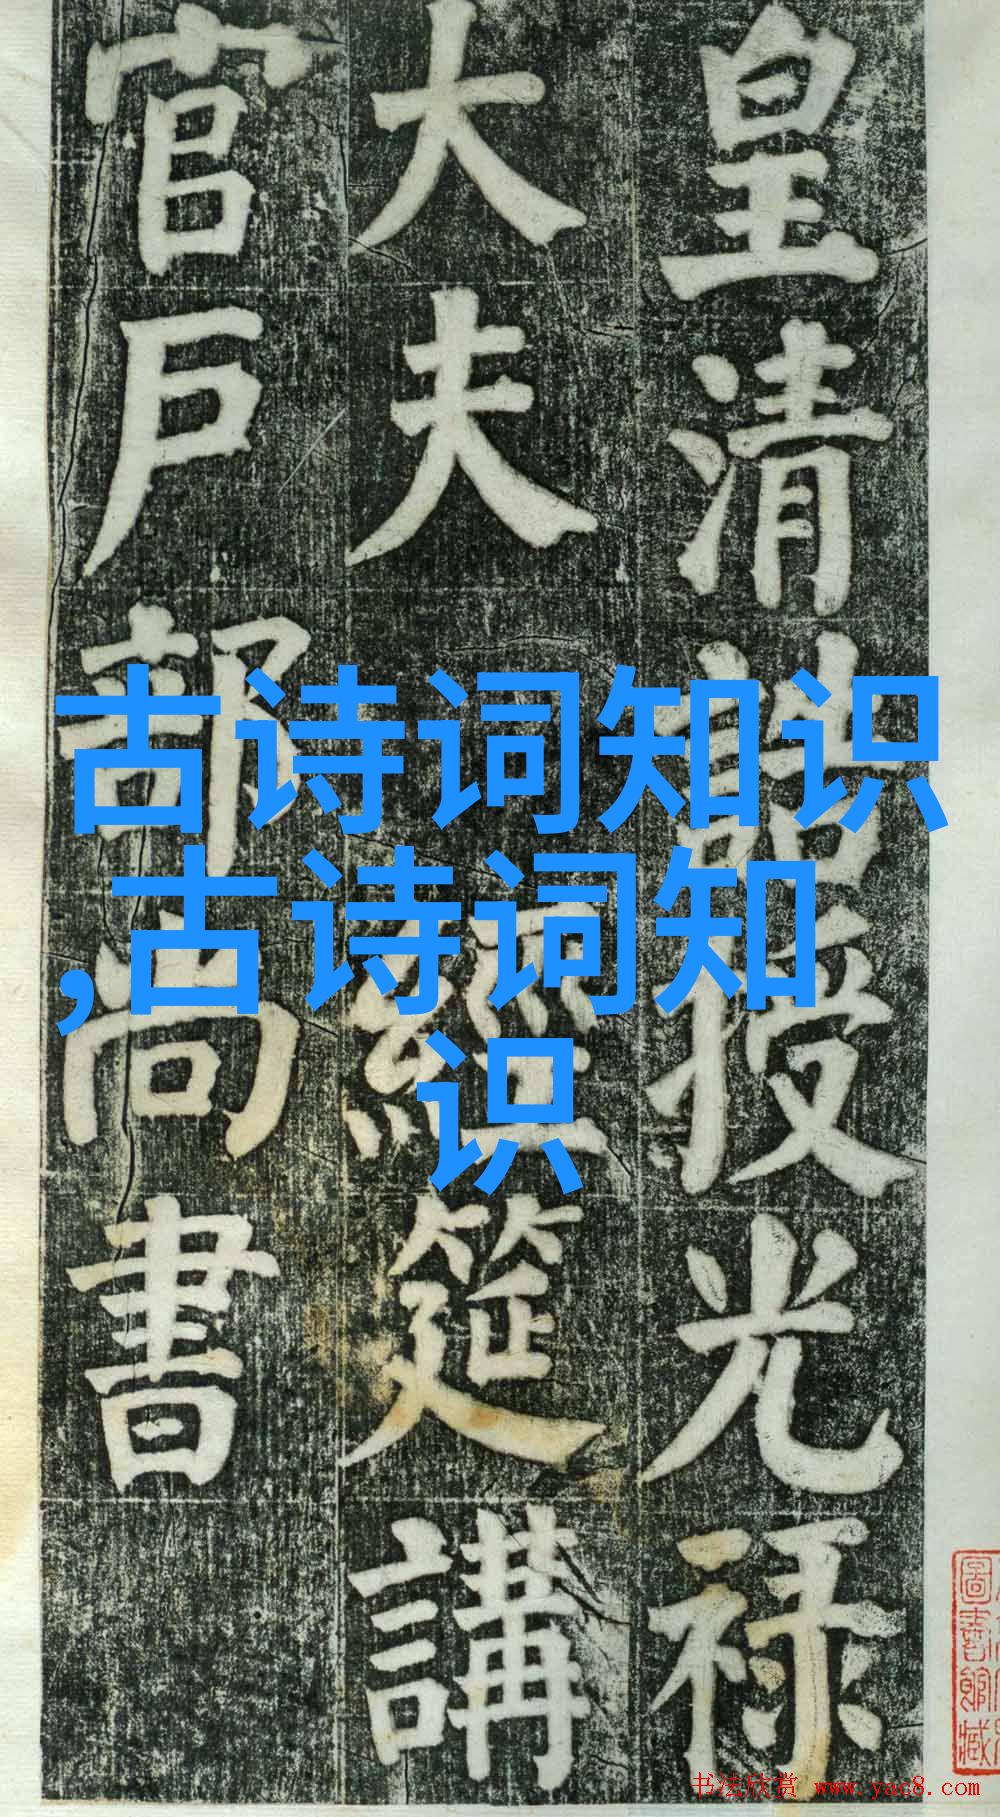 皇清誥授光禄
大夫經筵講
官戶部尚書
古诗词知识
,古诗词知
识
圖書館藏
书法欣赏 www.yac8.com